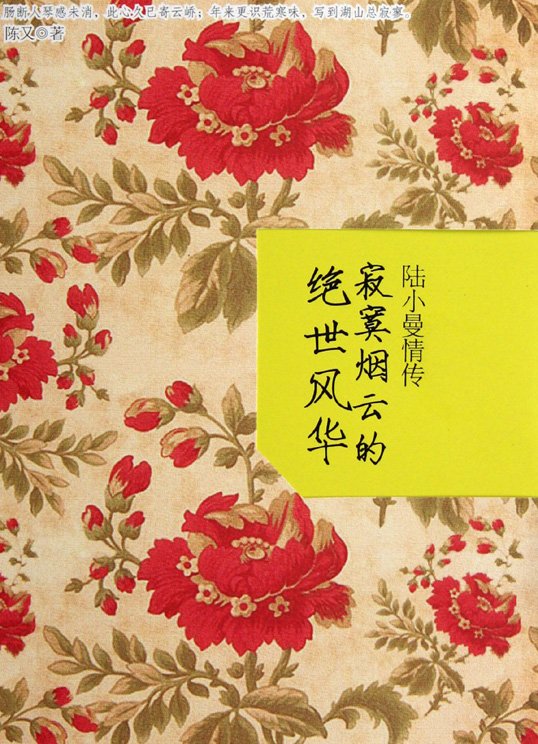 肠断人琴感未消，此心久已寄云峤；年来更识荒寒味，写到湖山总寂寥。
陈又◎著
陆小曼情传
寂寞烟云的
绝世风华